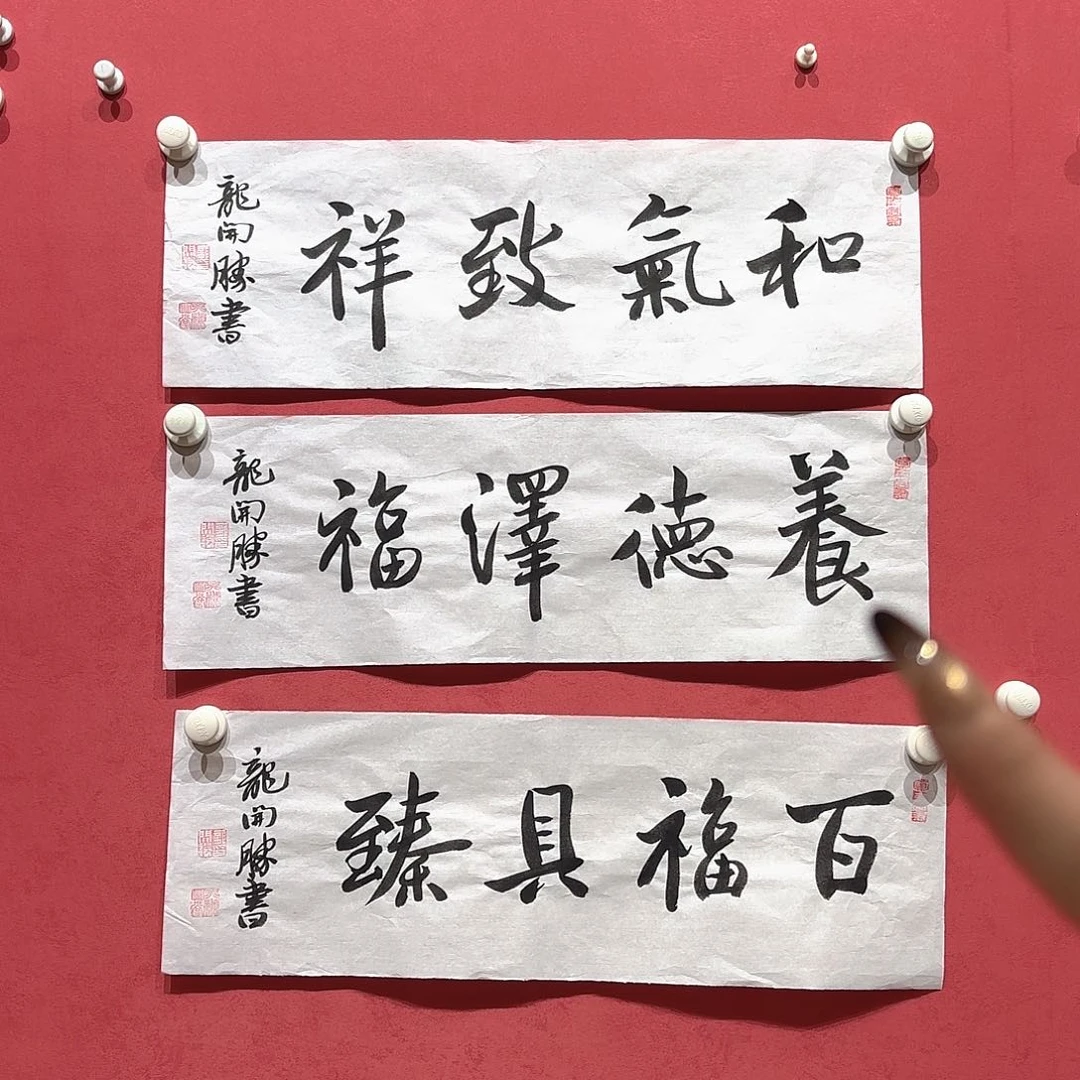 和氣致祥
龍開勝書
養德澤福
龍開勝書
百福具臻
龍開勝書